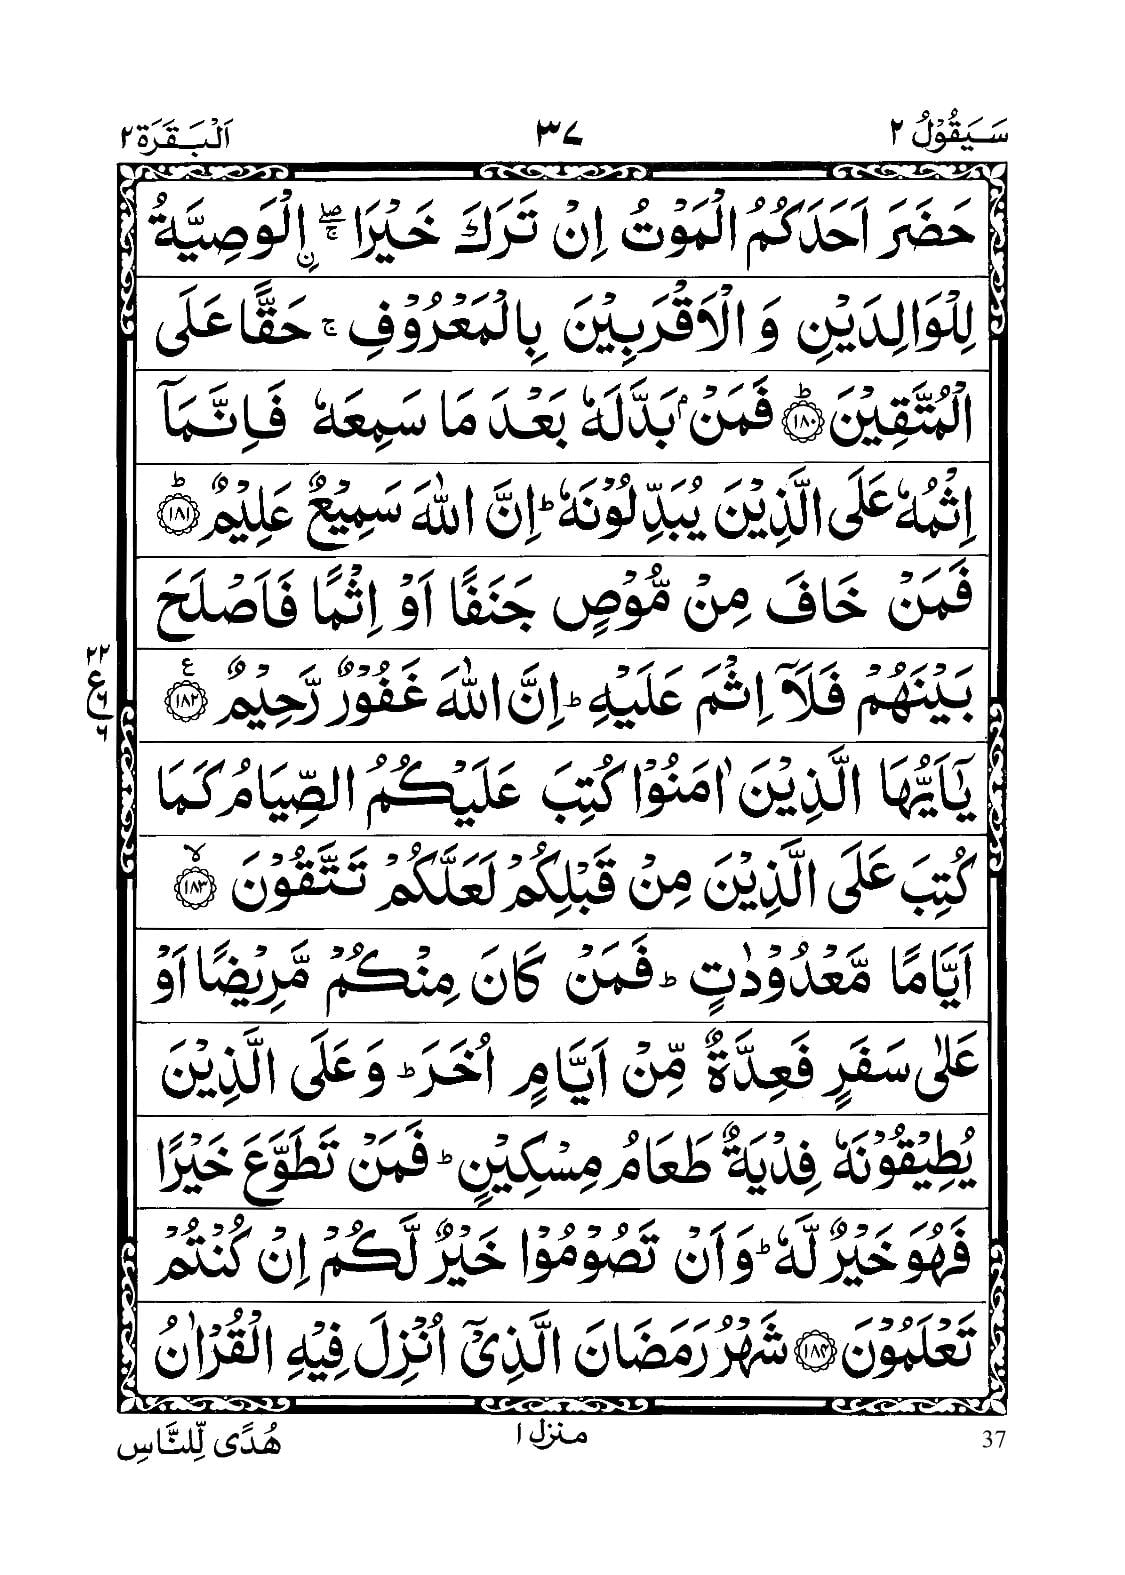 سَيَقُوْلُ ٢ ٣٧ اَلْبَقَرَة ٢
حَضَرَ اَحَدَكُمُ الْمَوْتُ اِنْ تَرَكَ خَيْرَا ۖۚ ۨ الْوَصِيَّةُ
لِلْوَالِدَيْنِ وَ الْاَقْرَبِيْنَ بِالْمَعْرُوْفِ ۚ حَقًّا عَلَى
الْمُتَّقِيْنَ ؕ ﴿١٨٠﴾ فَمَنْۢ بَدَّلَهٗ بَعْدَ مَا سَمِعَهٗ فَاِنَّمَاۤ
اِثْمُهٗ عَلَى الَّذِيْنَ يُبَدِّلُوْنَهٗ ؕ اِنَّ اللّٰهَ سَمِيْعٌ عَلِيْمٌ ؕ ﴿١٨١﴾
فَمَنْ خَافَ مِنْ مُّوْصٍ جَنَفًا اَوْ اِثْمًا فَاَصْلَحَ
بَيْنَهُمْ فَلَاۤ اِثْمَ عَلَيْهِ ؕ اِنَّ اللّٰهَ غَفُوْرٌ رَّحِيْمٌ ع ﴿١٨٢﴾
٢٢
ع ٦
٦
يٰۤاَيُّهَا الَّذِيْنَ اٰمَنُوْا كُتِبَ عَلَيْكُمُ الصِّيَامُ كَمَا
كُتِبَ عَلَى الَّذِيْنَ مِنْ قَبْلِكُمْ لَعَلَّكُمْ تَتَّقُوْنَ ۙ ﴿١٨٣﴾
اَيَّامًا مَّعْدُوْدٰتٍ ؕ فَمَنْ كَانَ مِنْكُمْ مَّرِيْضًا اَوْ
عَلٰى سَفَرٍ فَعِدَّةٌ مِّنْ اَيَّامٍ اُخَرَ ؕ وَ عَلَى الَّذِيْنَ
يُطِيْقُوْنَهٗ فِدْيَةٌ طَعَامُ مِسْكِيْنٍ ؕ فَمَنْ تَطَوَّعَ خَيْرًا
فَهُوَ خَيْرٌ لَّهٗ ؕ وَ اَنْ تَصُوْمُوْا خَيْرٌ لَّكُمْ اِنْ كُنْتُمْ
تَعْلَمُوْنَ ﴿١٨٤﴾ شَهْرُ رَمَضَانَ الَّذِيْۤ اُنْزِلَ فِيْهِ الْقُرْاٰنُ
37 منزل ١ هُدًى لِّلنَّاسِ